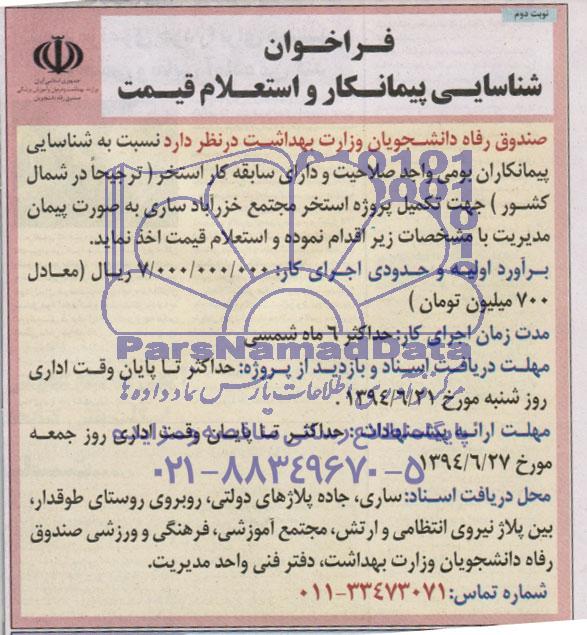 نوبت دوم
جمهوری اسلامی ایران
وزارت بهداشت، درمان و آموزش پزشکی
صندوق رفاه دانشجویان
فراخوان
شناسایی پیمانکار و استعلام قیمت
صندوق رفاه دانشجویان وزارت بهداشت درنظر دارد نسبت به شناسایی
پیمانکاران بومی واجد صلاحیت و دارای سابقه کار استخر ( ترجیحاً در شمال
کشور ) جهت تکمیل پروژه استخر مجتمع خزرآباد ساری به صورت پیمان
مدیریت با مشخصات زیر اقدام نموده و استعلام قیمت اخذ نماید.
برآورد اولیه و حدودی اجرای کار: ۷/۰۰۰/۰۰۰/۰۰۰ ریال (معادل
۷۰۰ میلیون تومان )
مدت زمان اجرای کار: حداکثر ۶ ماه شمسی
ParsNamadData
مهلت دریافت اسناد و بازدید از پروژه: حداکثر تا پایان وقت اداری
روز شنبه مورخ ۱۳۹۴/۶/۲۱
مهلت ارائه پیشنهادات: حداکثر تا پایان وقت اداری روز جمعه
مورخ ۱۳۹۴/۶/۲۷
۰۲۱-۸۸۳۴۹۶۷۰-۵
محل دریافت اسناد: ساری، جاده پلاژهای دولتی، روبروی روستای طوقدار،
بین پلاژ نیروی انتظامی و ارتش، مجتمع آموزشی، فرهنگی و ورزشی صندوق
رفاه دانشجویان وزارت بهداشت، دفتر فنی واحد مدیریت.
شماره تماس: ۰۱۱-۳۳۴۷۳۰۷۱